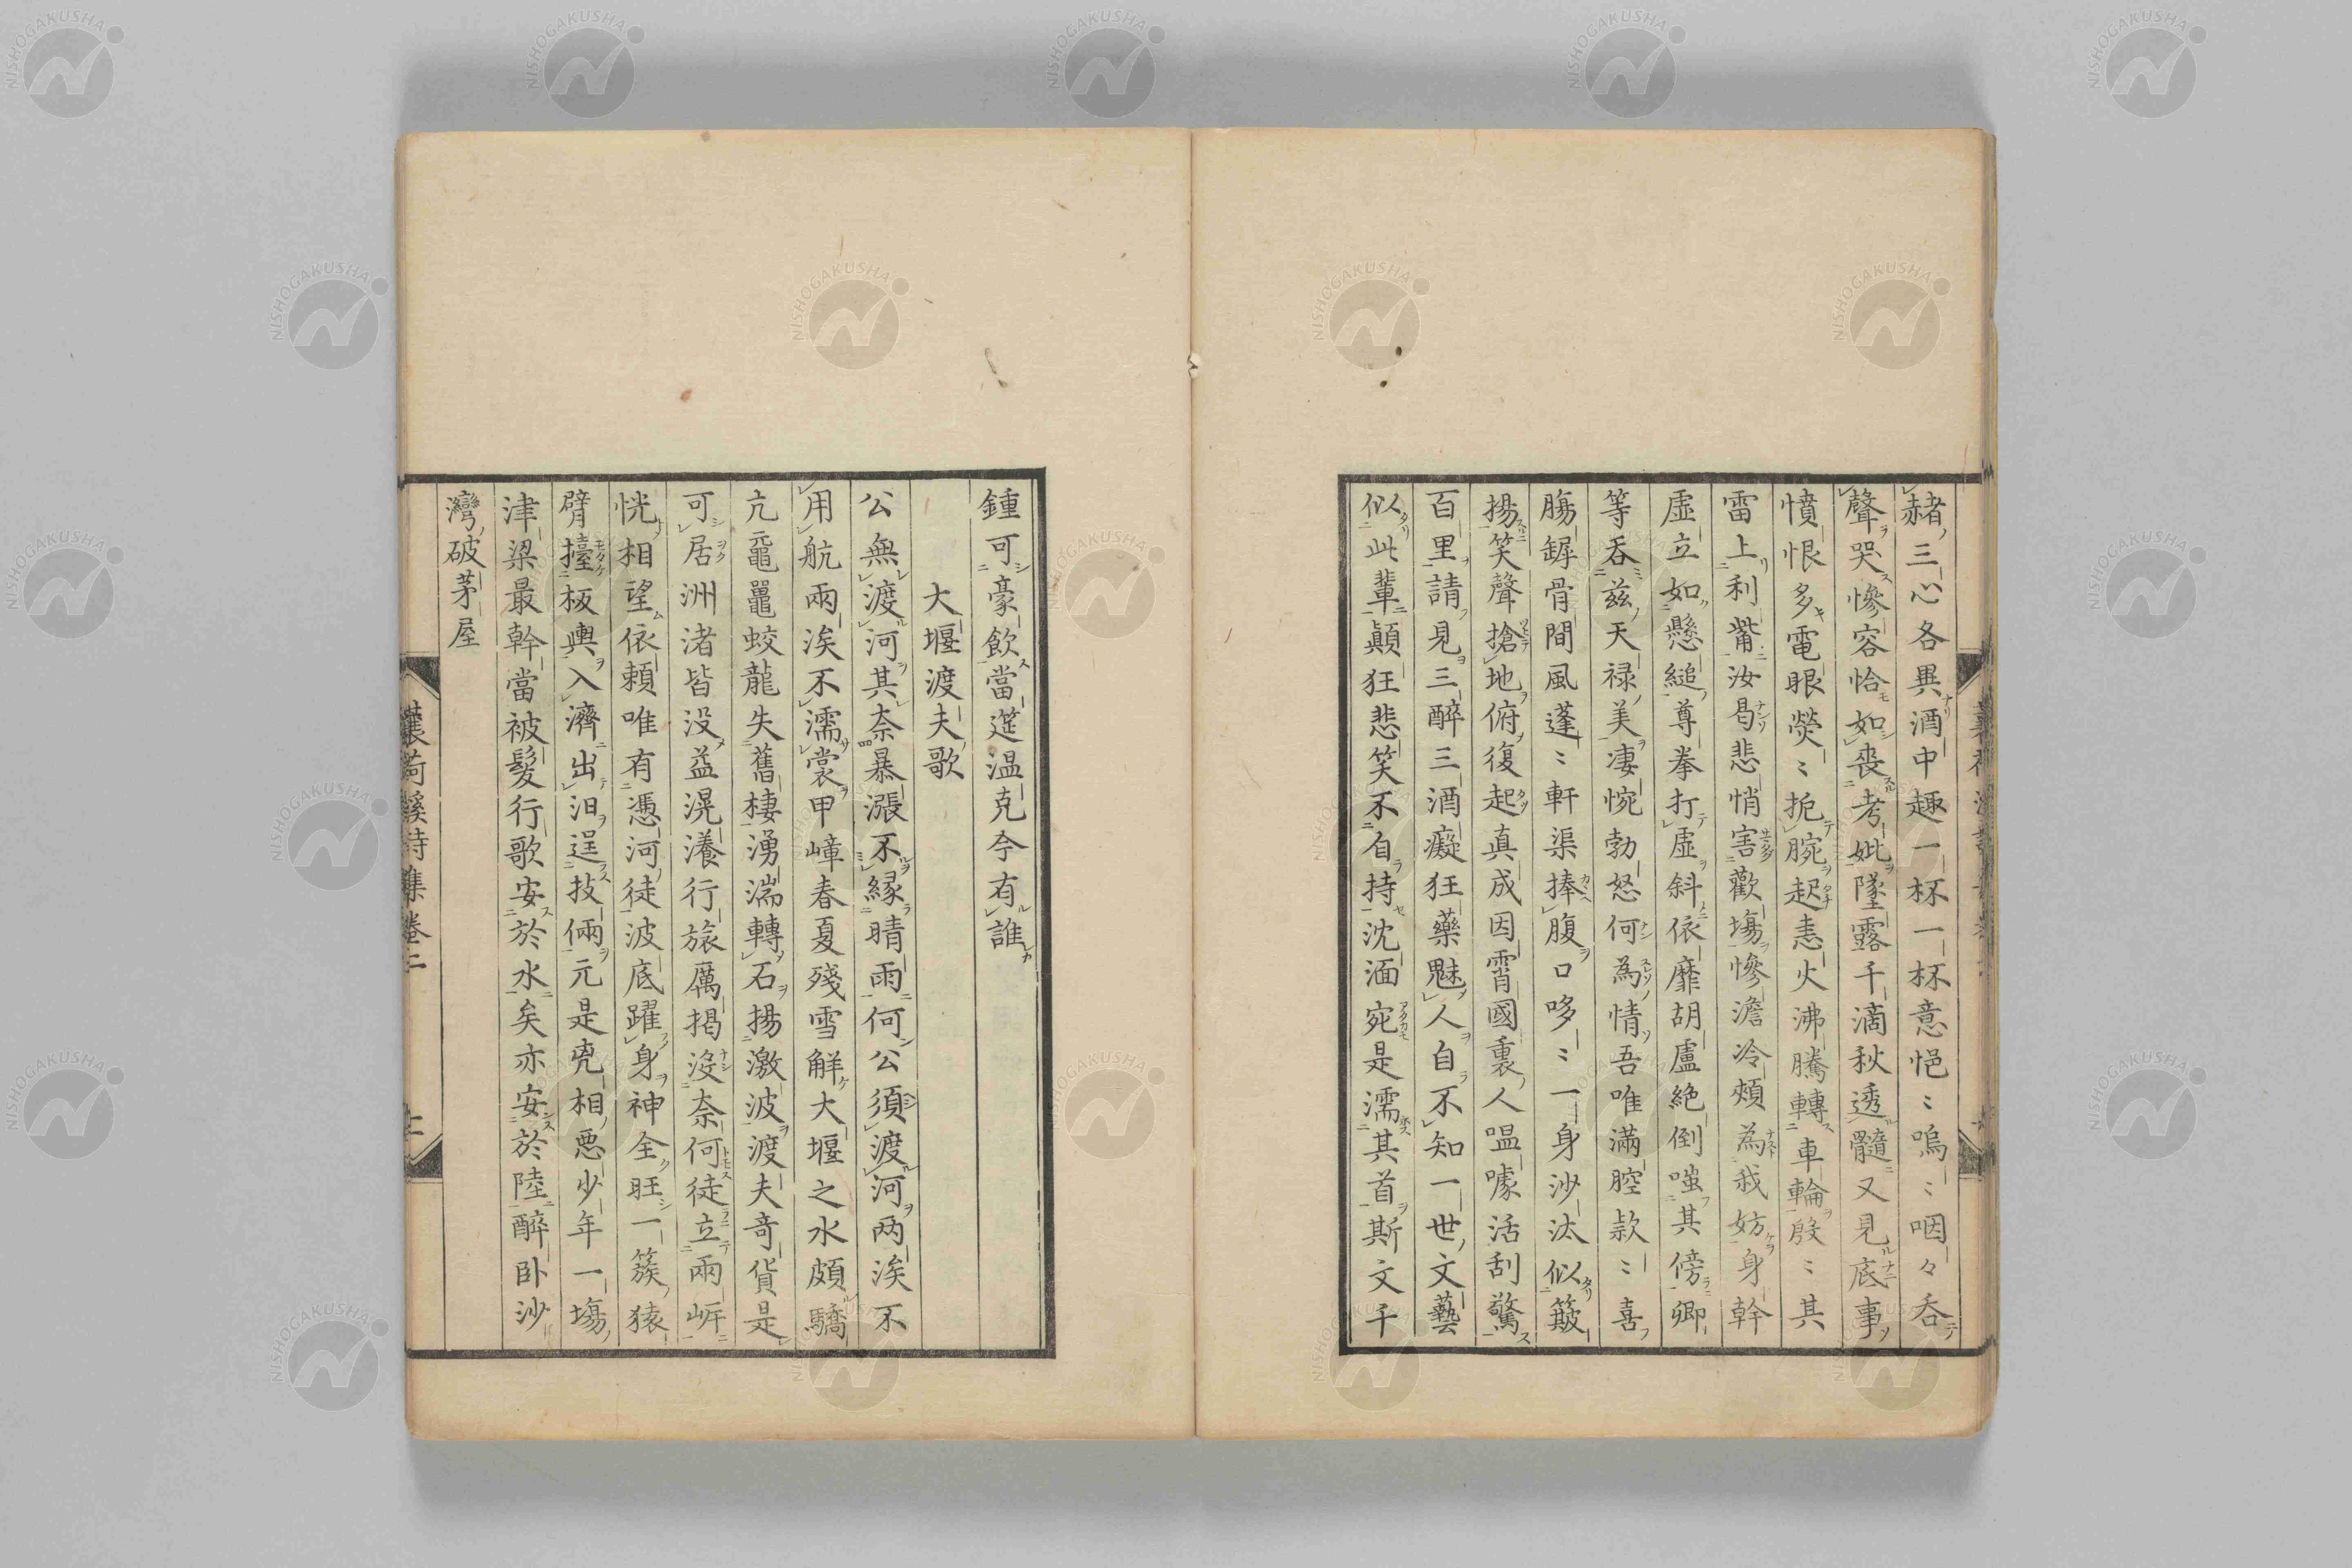 赭三心各異酒中趣一杯一杯意悒〻嗚〻咽々呑
聲哭慘容恰如喪考妣墜露千滴秋透髓又見底事
憤恨多電眼熒〻扼腕起恚火沸騰轉車輪殷〻其
雷上利觜汝曷悲悄害歡場慘澹冷頰為我妨身幹
虛立如懸縋尊拳打虛斜依靡胡盧絶倒嗤其傍卿
等呑茲天禄美凄惋勃怒何為情吾唯滿腔款〻喜
腸罅骨間風蓬〻軒渠捧腹口哆〻一身沙汰似簸
揚笑聲搶地俯復起真成因霄國裏人嗢噱活刮驚
百里請見三醉三酒癡狂藥魅人自不知一世文藝
似此輩顚狂悲笑不自持沈湎宛是濡其首斯文千
鍾可豪飲當筵温克今有誰
大堰渡夫歌
公無渡河其奈暴漲不縁晴雨何公須渡河两涘不
用航兩涘不濡裳甲嶂春夏殘雪解大堰之水頗驕
亢黿鼉蛟龍失舊棲湧湍轉石揚激波渡夫竒貨是
可居洲渚皆没益滉瀁行旅厲掲没奈何徒立兩岍
恍相望依頼唯有憑河徒波底躍身神全旺一簇猿
臂擡板輿入濟出汨逞技倆元是兇相悪少年一塲
津梁最幹當被髮行歌安於水矣亦安於陸醉卧沙
灣破茅屋
蘘荷溪詩集巻二